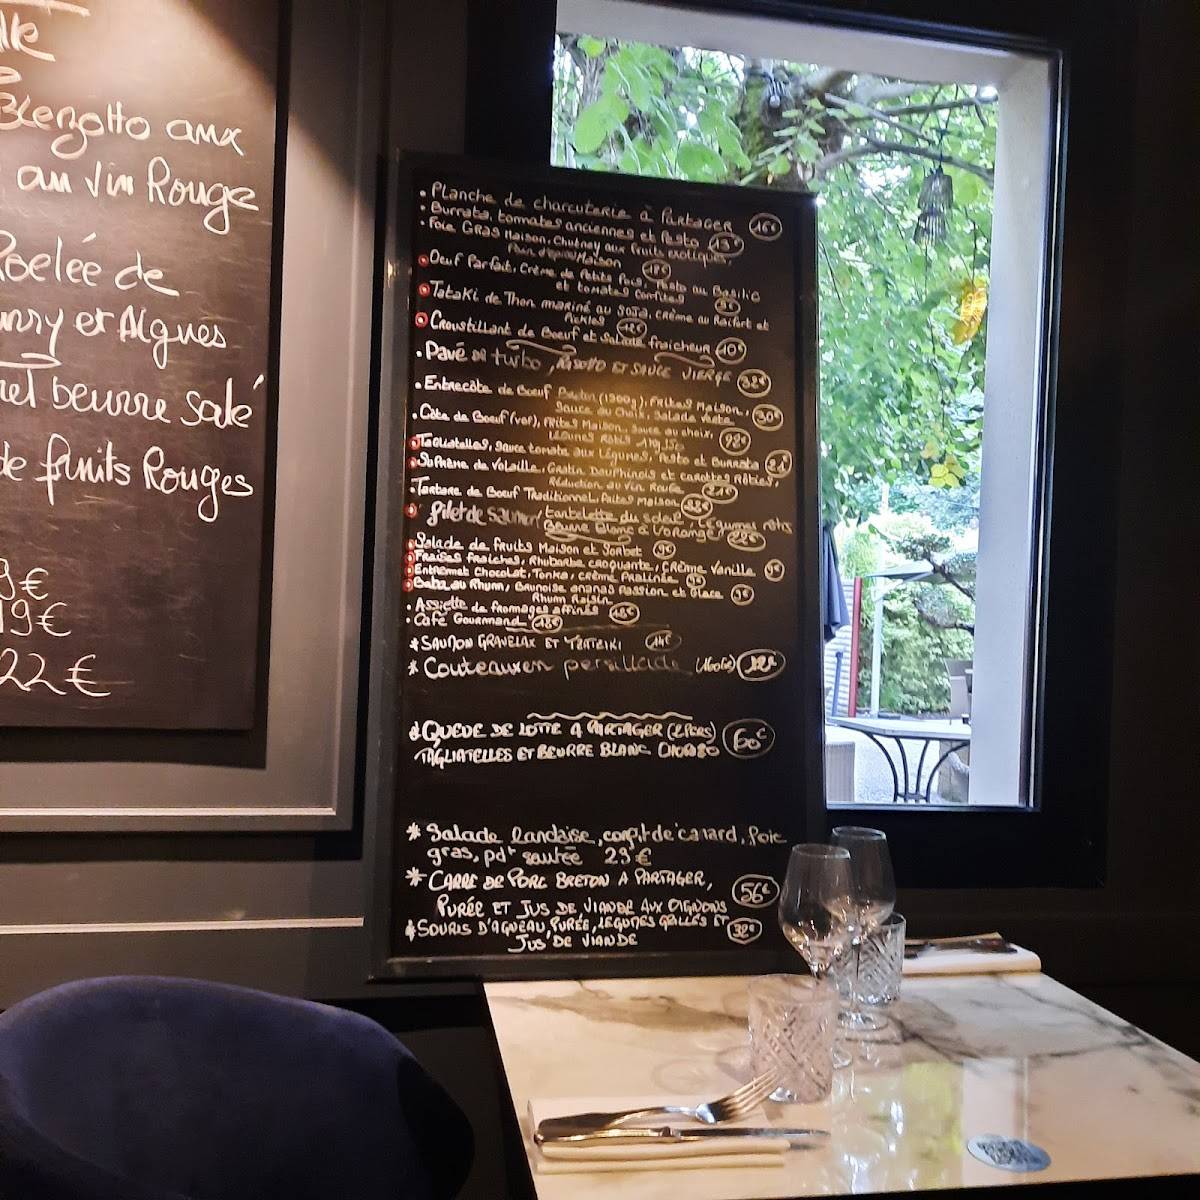 Blezotto aux
au Vin Rouge
Poelée de
et Algues
beurre salé
de fruits Rouges
9€
19€
22€
• Planche de charcuterie à Partager 16€
• Burrata, tomates anciennes et Pesto 13€
• Foie Gras Maison, Chutney aux fruits exotiques,
Maison 18€
• Oeuf Parfait, Crème de Petits Pois, Pesto au Basilic
et tomates confites 9€
• Tataki de Thon mariné au soja, crème au Raifort et
Pickles 12€
• Croustillant de Boeuf et salade fraicheur 10€
• Pavé de turbo, Risotto et sauce vierge 32€
• Entrecôte de Boeuf Breton (300g), Frites Maison,
Sauce au choix, Salade verte 30€
• Côte de Boeuf (vbf), Frites Maison, sauce au choix,
Légumes Rôtis 98€
• Tagliatelles, sauce tomate aux Légumes, Pesto et Burrata 21€
• Suprême de Volaille, Gratin Dauphinois et carottes Rôties,
Réduction au vin Rouge 21€
• Tartare de Boeuf Traditionnel, Frites Maison 22€
• filet de saumon, tartelette du soleil, Légumes rôtis
Beurre Blanc à l'orange
• Salade de fruits Maison et Sorbet 9€
• Fraises fraiches, Rhubarbe croquante, crème Vanille 9€
• Entremet Chocolat, Tonka, crème Praliné 9€
• Baba au Rhum, Brunoise ananas Passion et Glace
Rhum Raisin 9€
• Assiette de fromages affinés
• Café Gourmand
* SAUMON GRAVELAX ET TZATZIKI 14€
* Couteaux en persillade
* QUEUE DE LOTTE A PARTAGER (2 PERS) 60€
TAGLIATELLES ET BEURRE BLANC
* Salade landaise, confit de canard, foie
gras, pdt sautée 29€
* CARRE DE PORC BRETON A PARTAGER, 56€
PURÉE ET JUS DE VIANDE AUX OIGNONS
* SOURIS D'AGNEAU, PURÉE, LEGUMES GRILLÉS ET 32€
JUS DE VIANDE